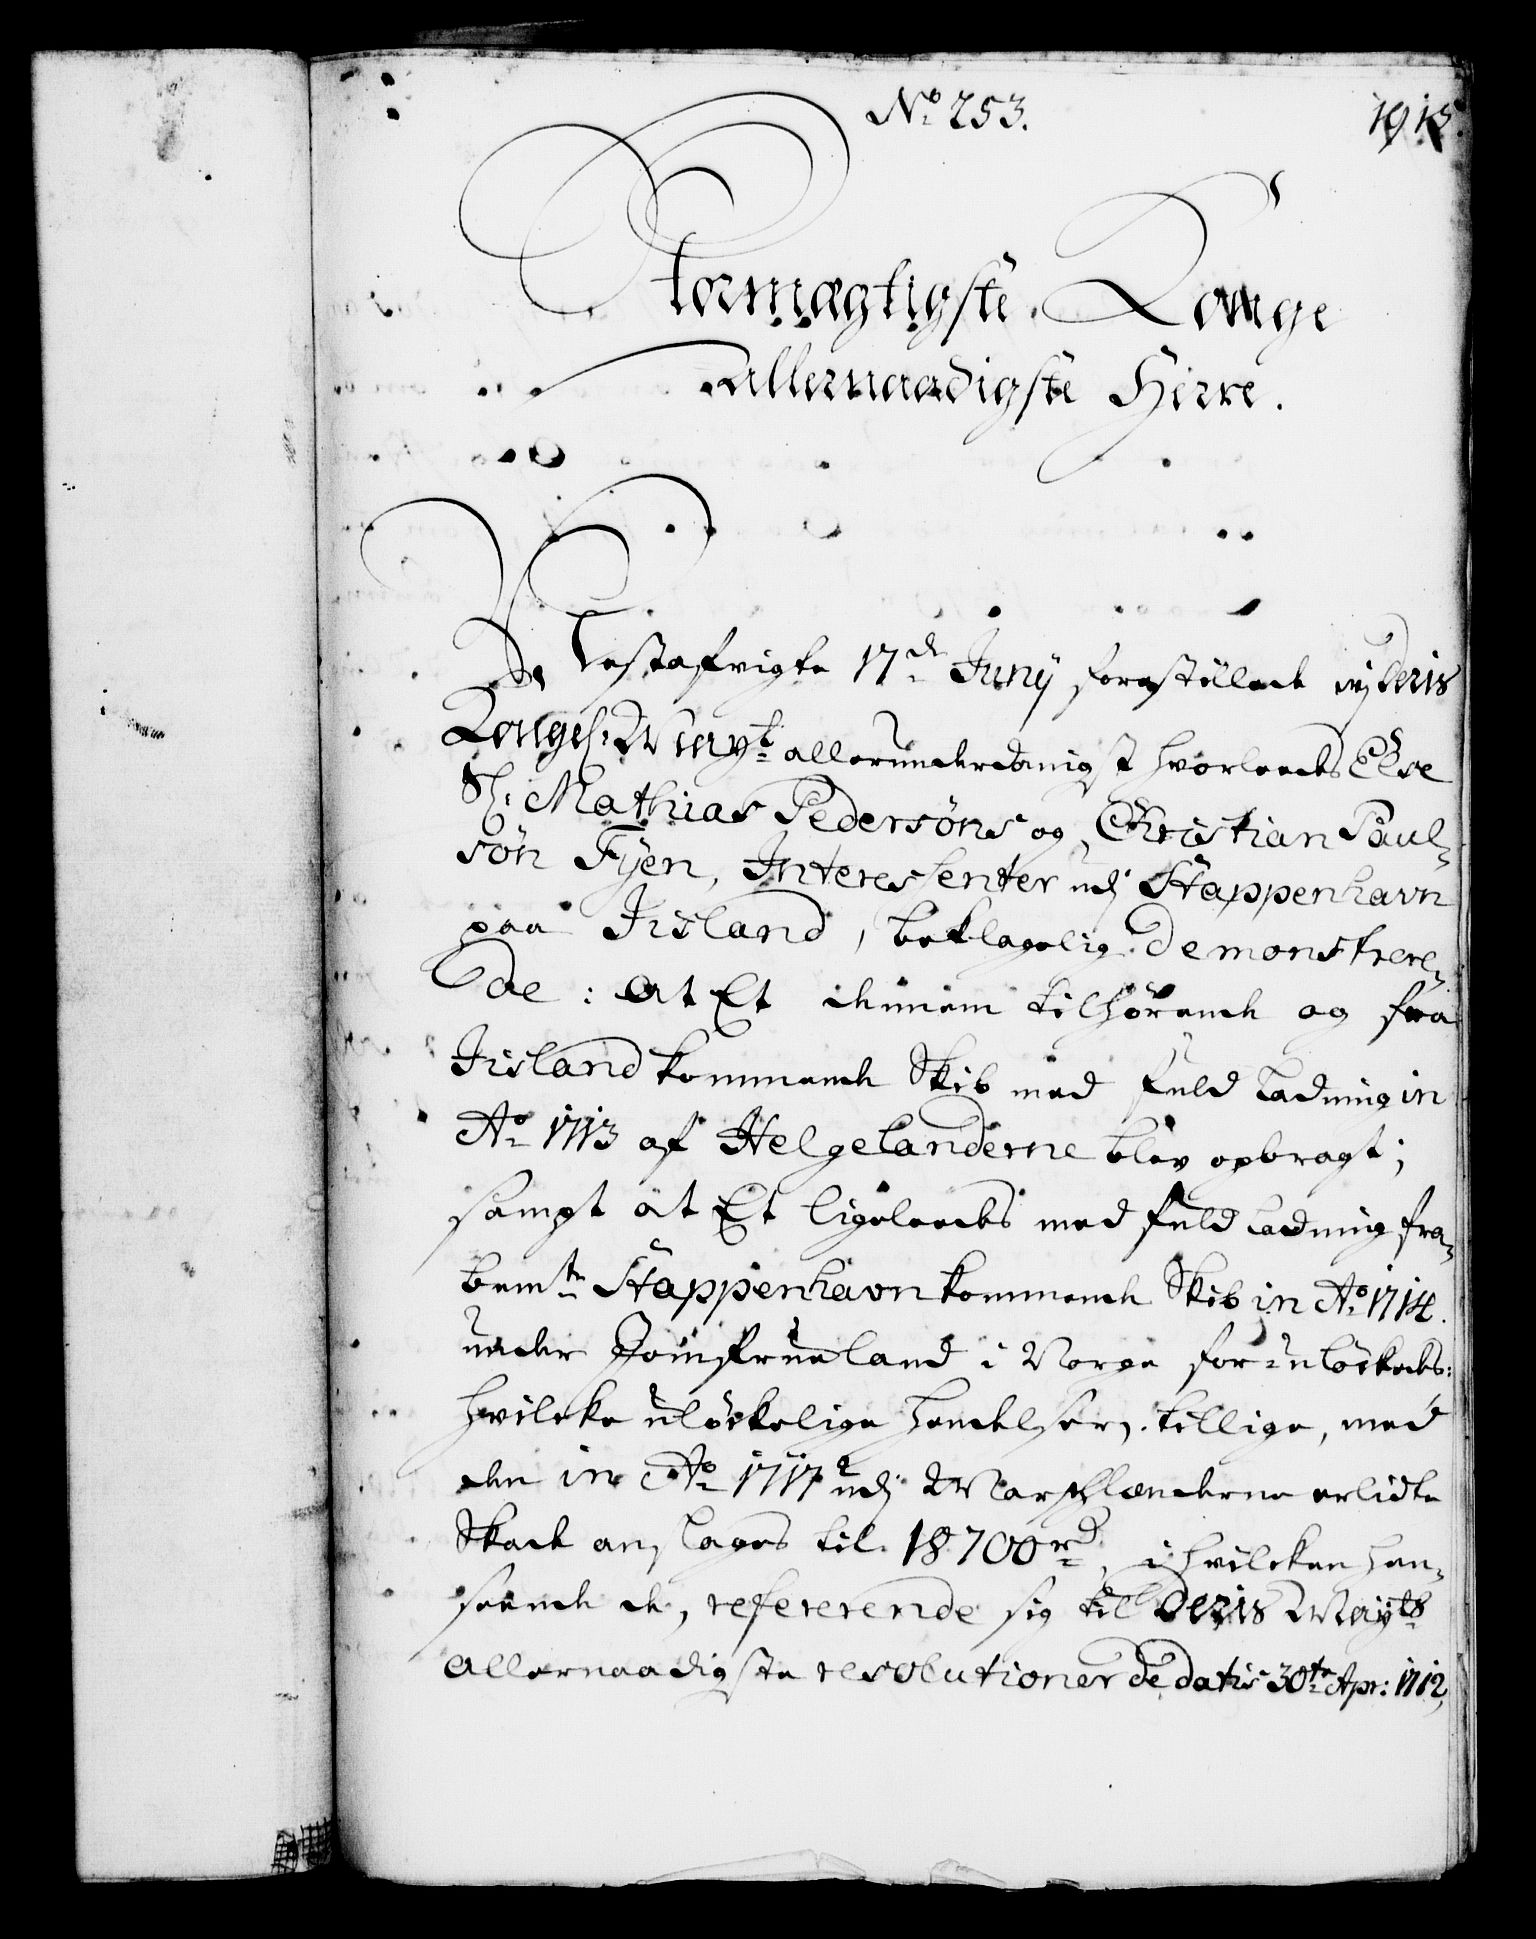 No 253.
1915.
Stormægtigste Konge
allernaadigste Herre.
Nestafvigte 17de Junÿ forestillede vj Deris
Kongel: Mayt allerunderdanigst hvorleedes Else
Sl: Mathias Pedersöns og Christian Paul-
sön Fÿen, Interessenter udj Stappenhavn
paa Jisland, beklagelig demonstrere-
de: at Et dennem tilhörende og fra
Jisland kommende Skib med fuld Ladning in
Ao 1713 af Helgelanderne blev opbragt;
sampt at Et ligeleedes med fuld Ladning fra
bemte Stappenhavn kommende Skib in Ao 1714.
under Jomfrueland i Norge for-ulöckedes:
hvilcke ulöckelige Hendelser, tillige, med
den in Ao 1717 udj Marstrand erlidte
Skade anslages til 18700 rd, i hvilcken Hen-
seende de, refererende sig til Deris Mayts
allernaadigste resolutioner de datis 30te Apr: 1712,